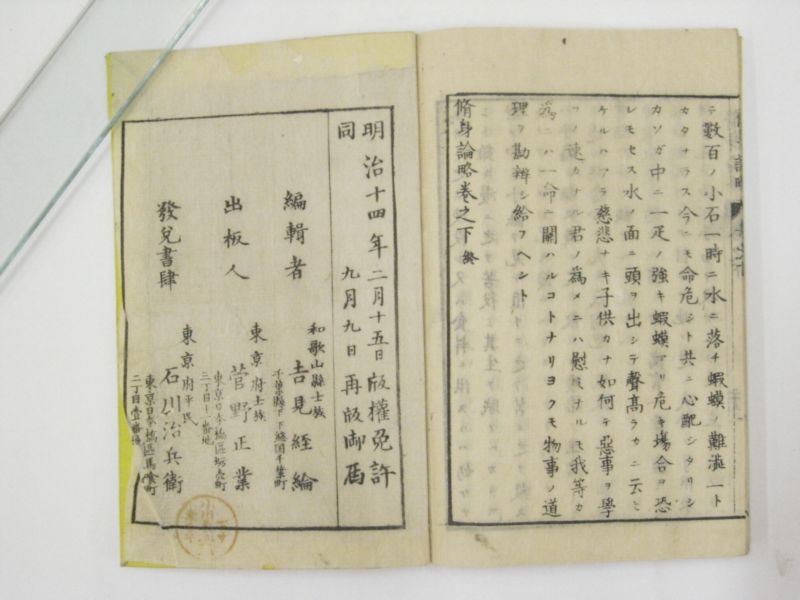 テ數百ノ小石一時ニ水ニ落チ蝦蟆ノ難澁一ト
カタナラス今ニモ命危シト共ニ心配シタリシ
カソガ中ニ一疋ノ強キ蝦蟆アリ危キ塲合ヲ恐
レモセス水ノ面ニ頭ヲ出シテ聲高ラカニ云ヒ
ケルハアラ慈悲ナキ子供カナ如何テ惡事ヲ學
フノ速カナル君ノ爲メニハ慰ミナルモ我等カ
爲ニハ一命ニ關ハルコトナリヨクモ物事ノ道
理ヲ勘辨シ給フヘシト
脩身論略卷之下終
明治十四年二月十五日版權免許
同九月九日再版御届
編輯者
和歌山縣士族
吉見經綸
千葉縣下下總國千葉町
出板人
東京府士族
菅野正業
東京日本橋區蛎殼町
三丁目十一番地
發兌書肆
東京府平民
石川治兵衛
東京日本橋區馬喰町
二丁目壹番地